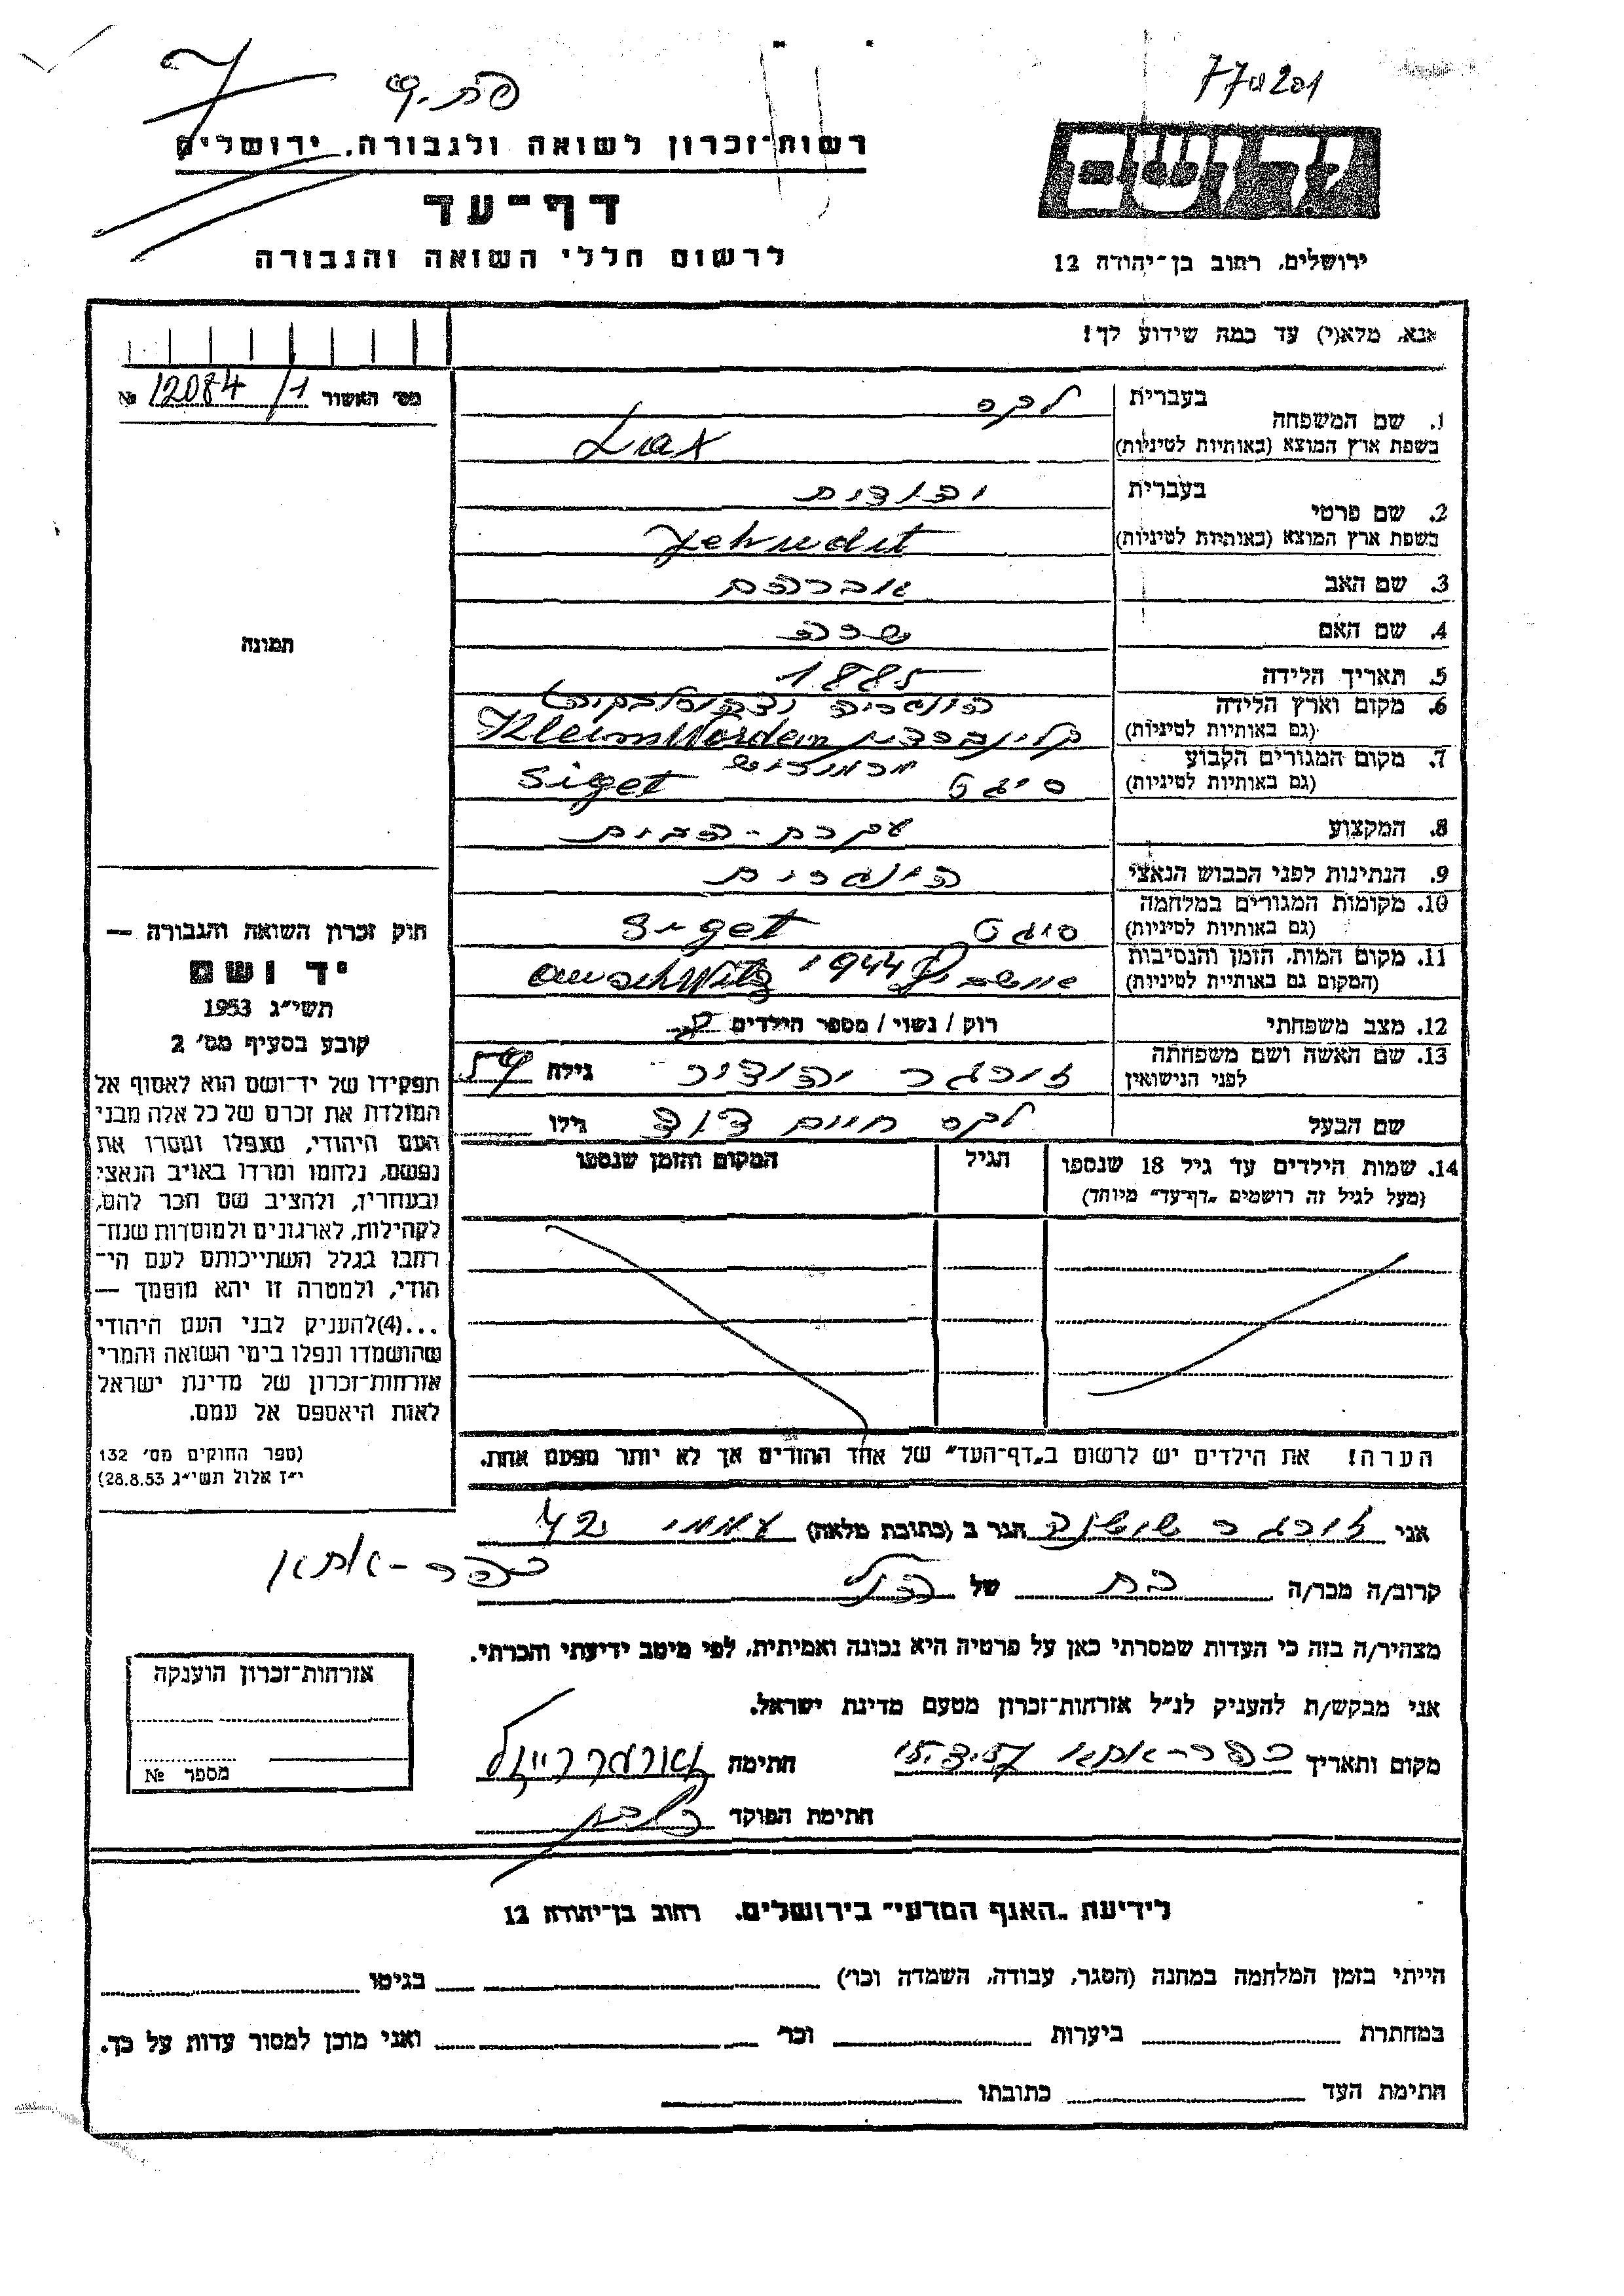 770201
פת.ק.
רשות־זכרון לשואה ולגבורה, ירושלים
יד ושם
דף־עד
לרשום חללי השואה והגבורה
ירושלים, רחוב בן־יהודה 12
אנא, מלא(י) עד כמה שידוע לך!
מס׳ האשור 12084/1 №
1. שם המשפחה
בעברית לקס
בשפת ארץ המוצא (באותיות לטיניות) Lax
2. שם פרטי
בעברית יהודית
בשפת ארץ המוצא (באותיות לטיניות) Jehudit
3. שם האב אברהם
4. שם האם שרה
תמונה
5. תאריך הלידה 1885
6. מקום וארץ הלידה
(גם באותיות לטיניות)
7. מקום המגורים הקבוע סיגט Siget
(גם באותיות לטיניות)
8. המקצוע עקרת-הבית
9. הנתינות לפני הכבוש הנאצי הונגרית
10. מקומות המגורים במלחמה סיגט Siget
(גם באותיות לטיניות)
11. מקום המות, הזמן והנסיבות 1944 auschWitz
(המקום גם באותיית לטיניות)
12. מצב משפחתי רווק / נשוי / מספר הילדים
13. שם האשה ושם משפחתה יהודית גילה 59
לפני הנישואין
שם הבעל לקס חיים דוד גילו
14. שמות הילדים עד גיל 18 שנספו הגיל המקום והזמן שנספו
(מעל לגיל זה רושמים „דף־עד״ מיוחד)
הערה! את הילדים יש לרשום ב„דף־העד״ של אחד ההורים אך לא יותר מפעם אחת.
חוק זכרון השואה והגבורה —
יד ושם
תשי״ג 1953
קובע בסעיף מס׳ 2
תפקידו של יד־ושם הוא לאסוף אל
המולדת את זכרם של כל אלה מבני
העם היהודי, שנפלו ומסרו את
נפשם, נלחמו ומרדו באויב הנאצי
ובעוזריו, ולהציב שם וזכר להם,
לקהילות, לארגונים ולמוסדות שנח־
רבו בגלל השתייכותם לעם הי־
הודי, ולמטרה זו יהא מוסמך —
...(4)להעניק לבני העם היהודי
שהושמדו ונפלו בימי השואה והמרי
אזרחות־זכרון של מדינת ישראל
לאות היאספם אל עמם.
(ספר החוקים מס׳ 132
י״ז אלול תשי״ג 28.8.53)
אני שושנה הגר ב (כתובת מלאה) עממי
כפר-אתא
קרוב/ה מכר/ה בת של הנ״ל
מצהיר/ה בזה כי העדות שמסרתי כאן על פרטיה היא נכונה ואמיתית, לפי מיטב ידיעתי והכרתי.
אני מבקש/ת להעניק לנ״ל אזרחות־זכרון מטעם מדינת ישראל.
מקום ותאריך כפר-אתא חתימה
חתימת הפוקד
אזרחות־זכרון הוענקה
מספר №
לידיעת „האגף המדעי״ בירושלים, רחוב בן־יהודה 12
הייתי בזמן המלחמה במחנה (הסגר, עבודה, השמדה וכו׳) בגיטו
במחתרת ביערות וכו׳ ואני מוכן למסור עדות על כך.
חתימת העד כתובתו